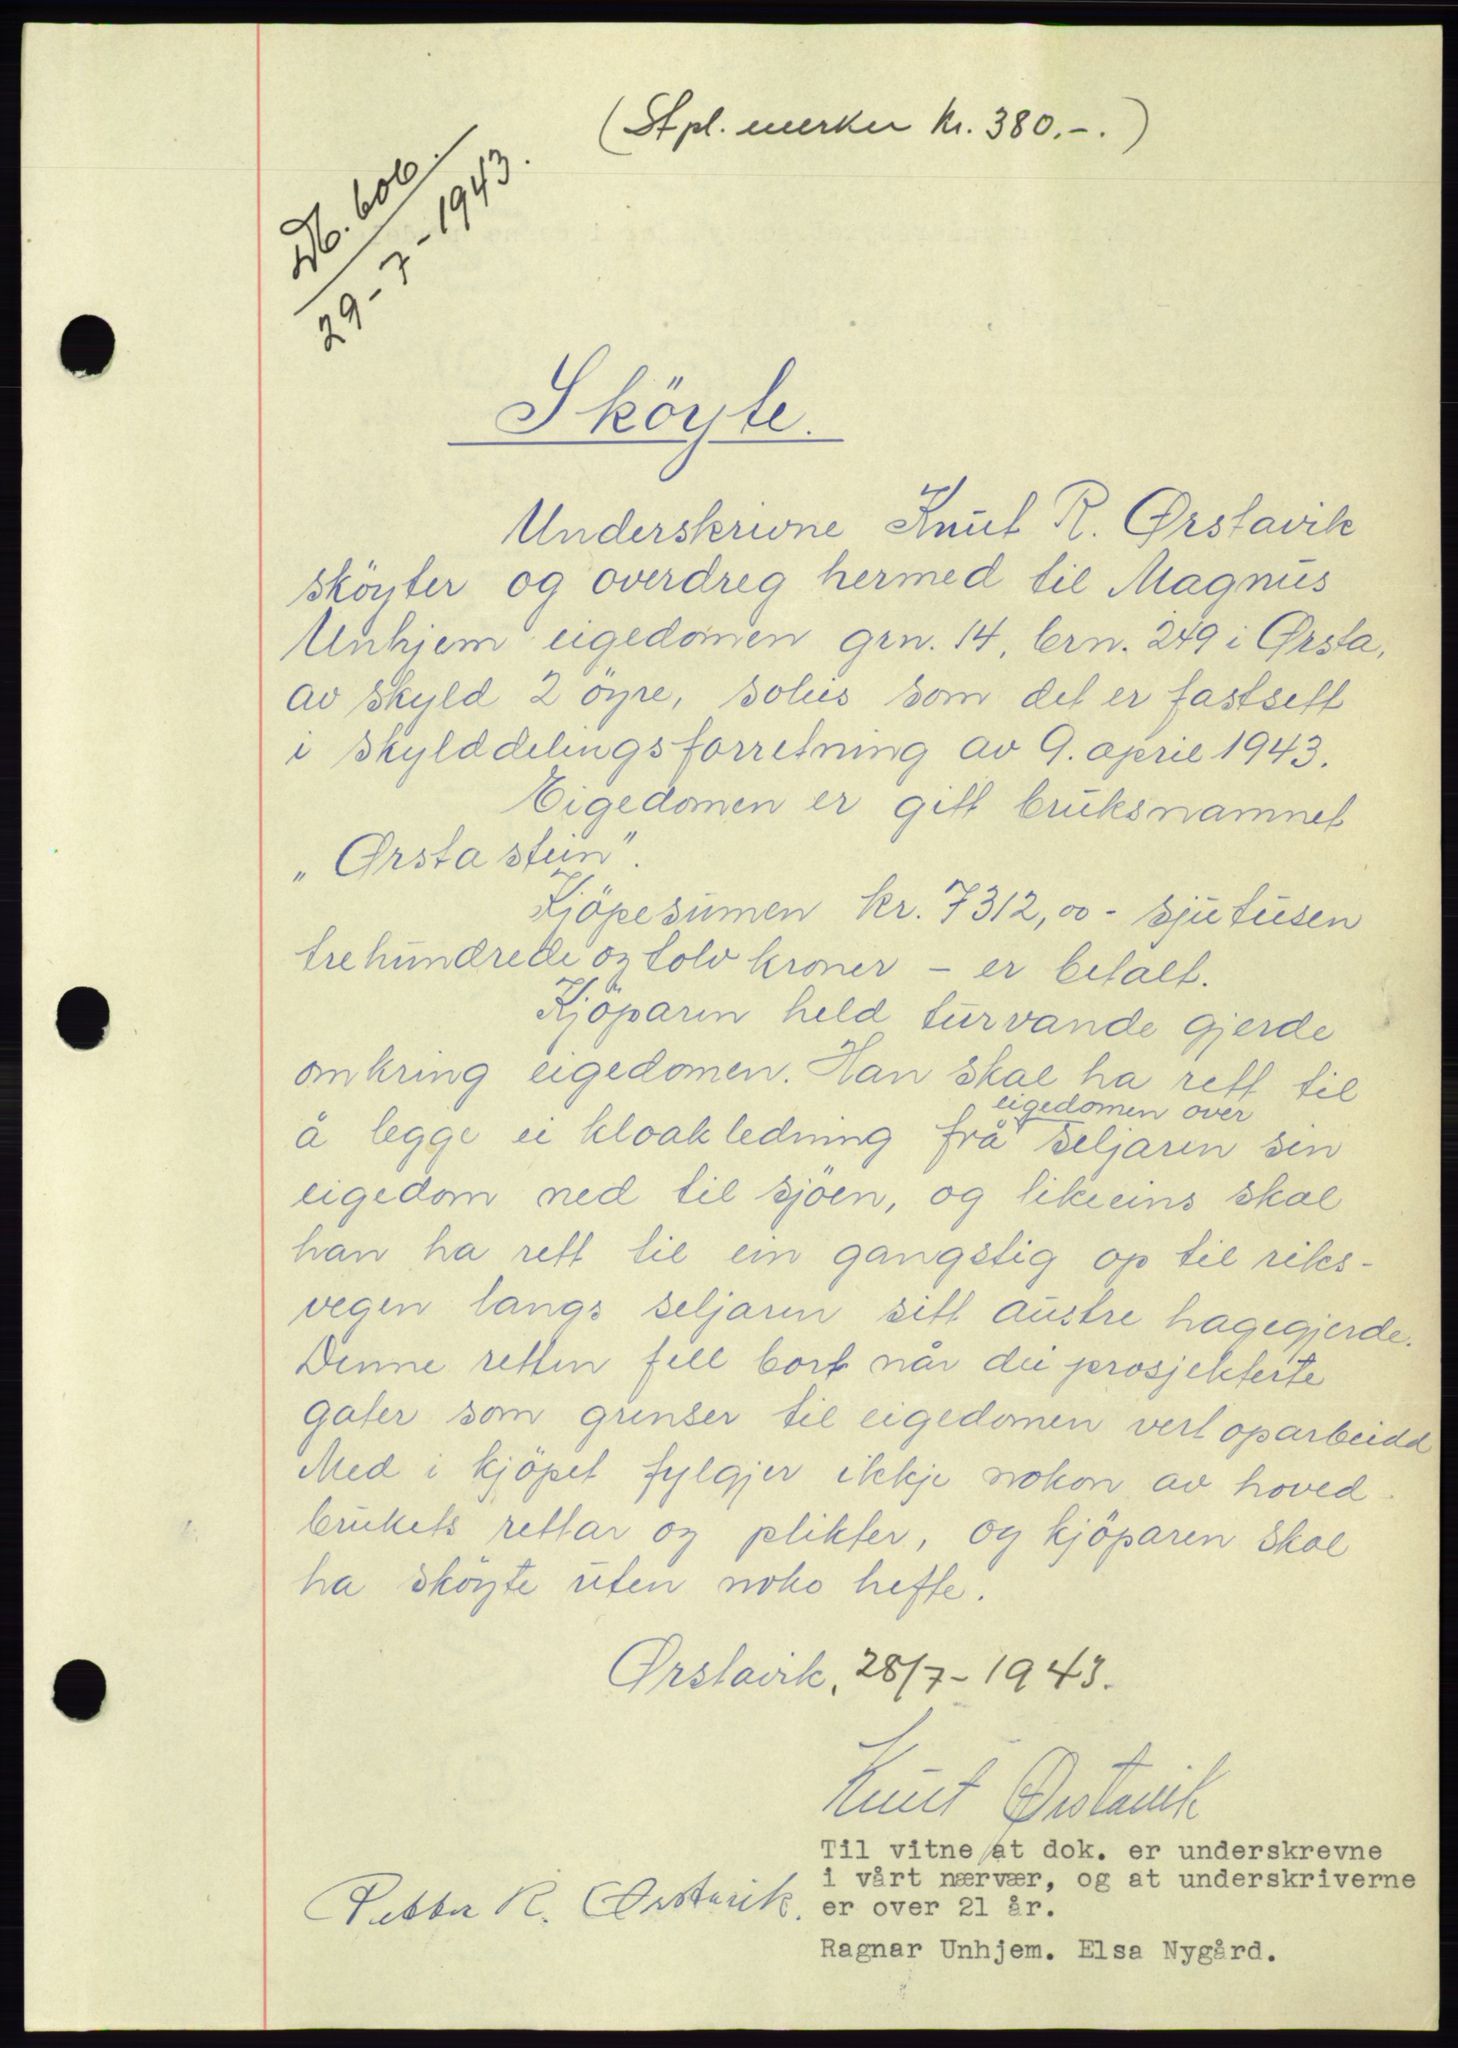 (Stpl. merker kr. 380.-.)
Db. 606.
29-7-1943.
Sköyte.
Underskrivne Knut R. Ørstavik
sköyter og overdreg hermed til Magnus
Unhjem eigedomen grn. 14, brn. 249 i Ørsta,
av skyld 2 öyre, soleis som det er fastsett
i skylddelingsforretning av 9. april 1943.
Eigedomen er gitt bruksnamnet
„Ørstastein".
Kjöpesumen kr. 7312,00 - sjutusen
trehundrede og tolv kroner - er betalt.
Kjöparen held turvande gjerde
omkring eigedomen. Han skal ha rett til
eigedomen over
å legge ei kloakledning frå seljaren sin
eigedom ned til sjöen, og likeeins skal
han ha rett til ein gangstig op til riks-
vegen langs seljaren sitt austre hagegjerde.
Denne retten fell bort når dei prosjekterte
gater som grenser til eigedomen vert oparbeidd
Med i kjöpet fylgjer ikkje nokon av hoved-
brukets rettar og plikter, og kjöparen skal
ha sköyte uten noko hefte.
Ørstavik, 28/7-1943.
Knut Ørstavik
Til vitne at dok. er underskrevne
i vårt nærvær, og at underskriverne
er over 21 år.
Petter R. Ørstavik.
Ragnar Unhjem. Elsa Nygård.